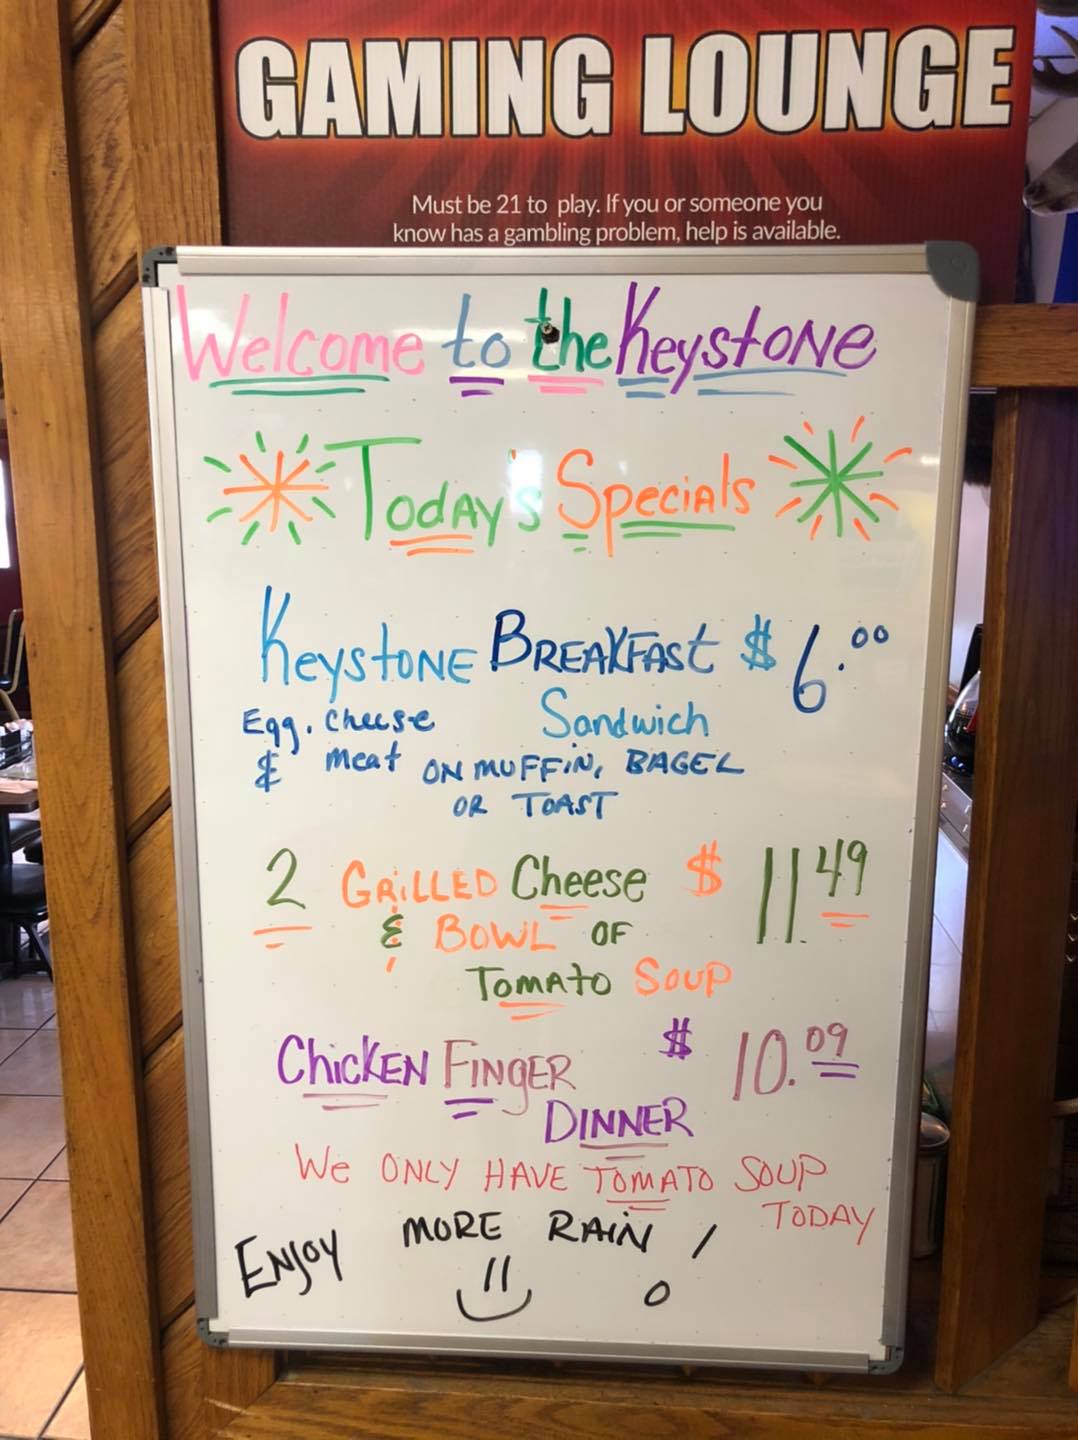 GAMING LOUNGE
Must be 21 to play. If you or someone you
know has a gambling problem, help is available.
Welcome to the Keystone
Today's Specials
Keystone Breakfast $6.00
Egg, cheese Sandwich
& meat on muffin, bagel
or toast
2 Grilled Cheese $11.49
& Bowl of
Tomato Soup
Chicken Finger $10.09
Dinner
We only have tomato soup
today
Enjoy more rain!